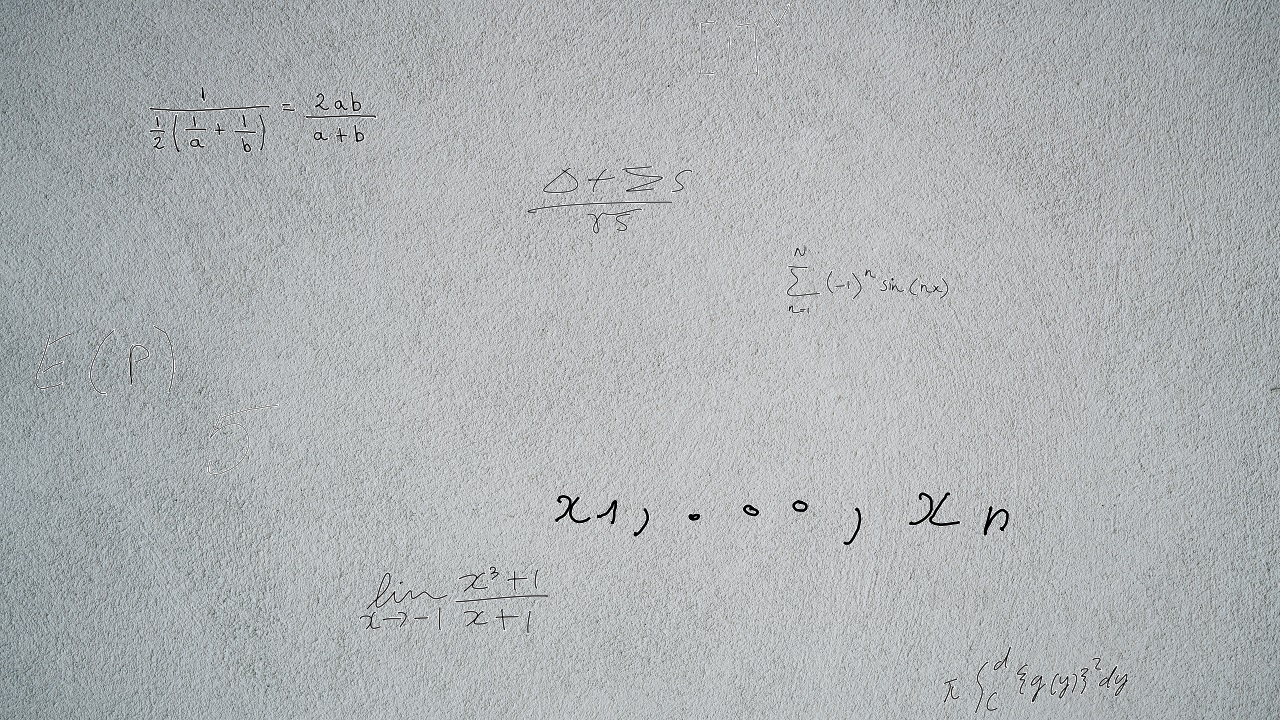 [ ]
\frac{1}{\frac{1}{2}\left(\frac{1}{a}+\frac{1}{b}\right)} = \frac{2ab}{a+b}
\frac{\Delta + \Sigma s}{\gamma s}
\sum_{n=1}^{N} (-1)^n \sin(nx)
E(P)
x1, . . . , xn
\lim_{x \to -1} \frac{x^3+1}{x+1}
\pi \int_c^d \{g(y)\}^2 dy